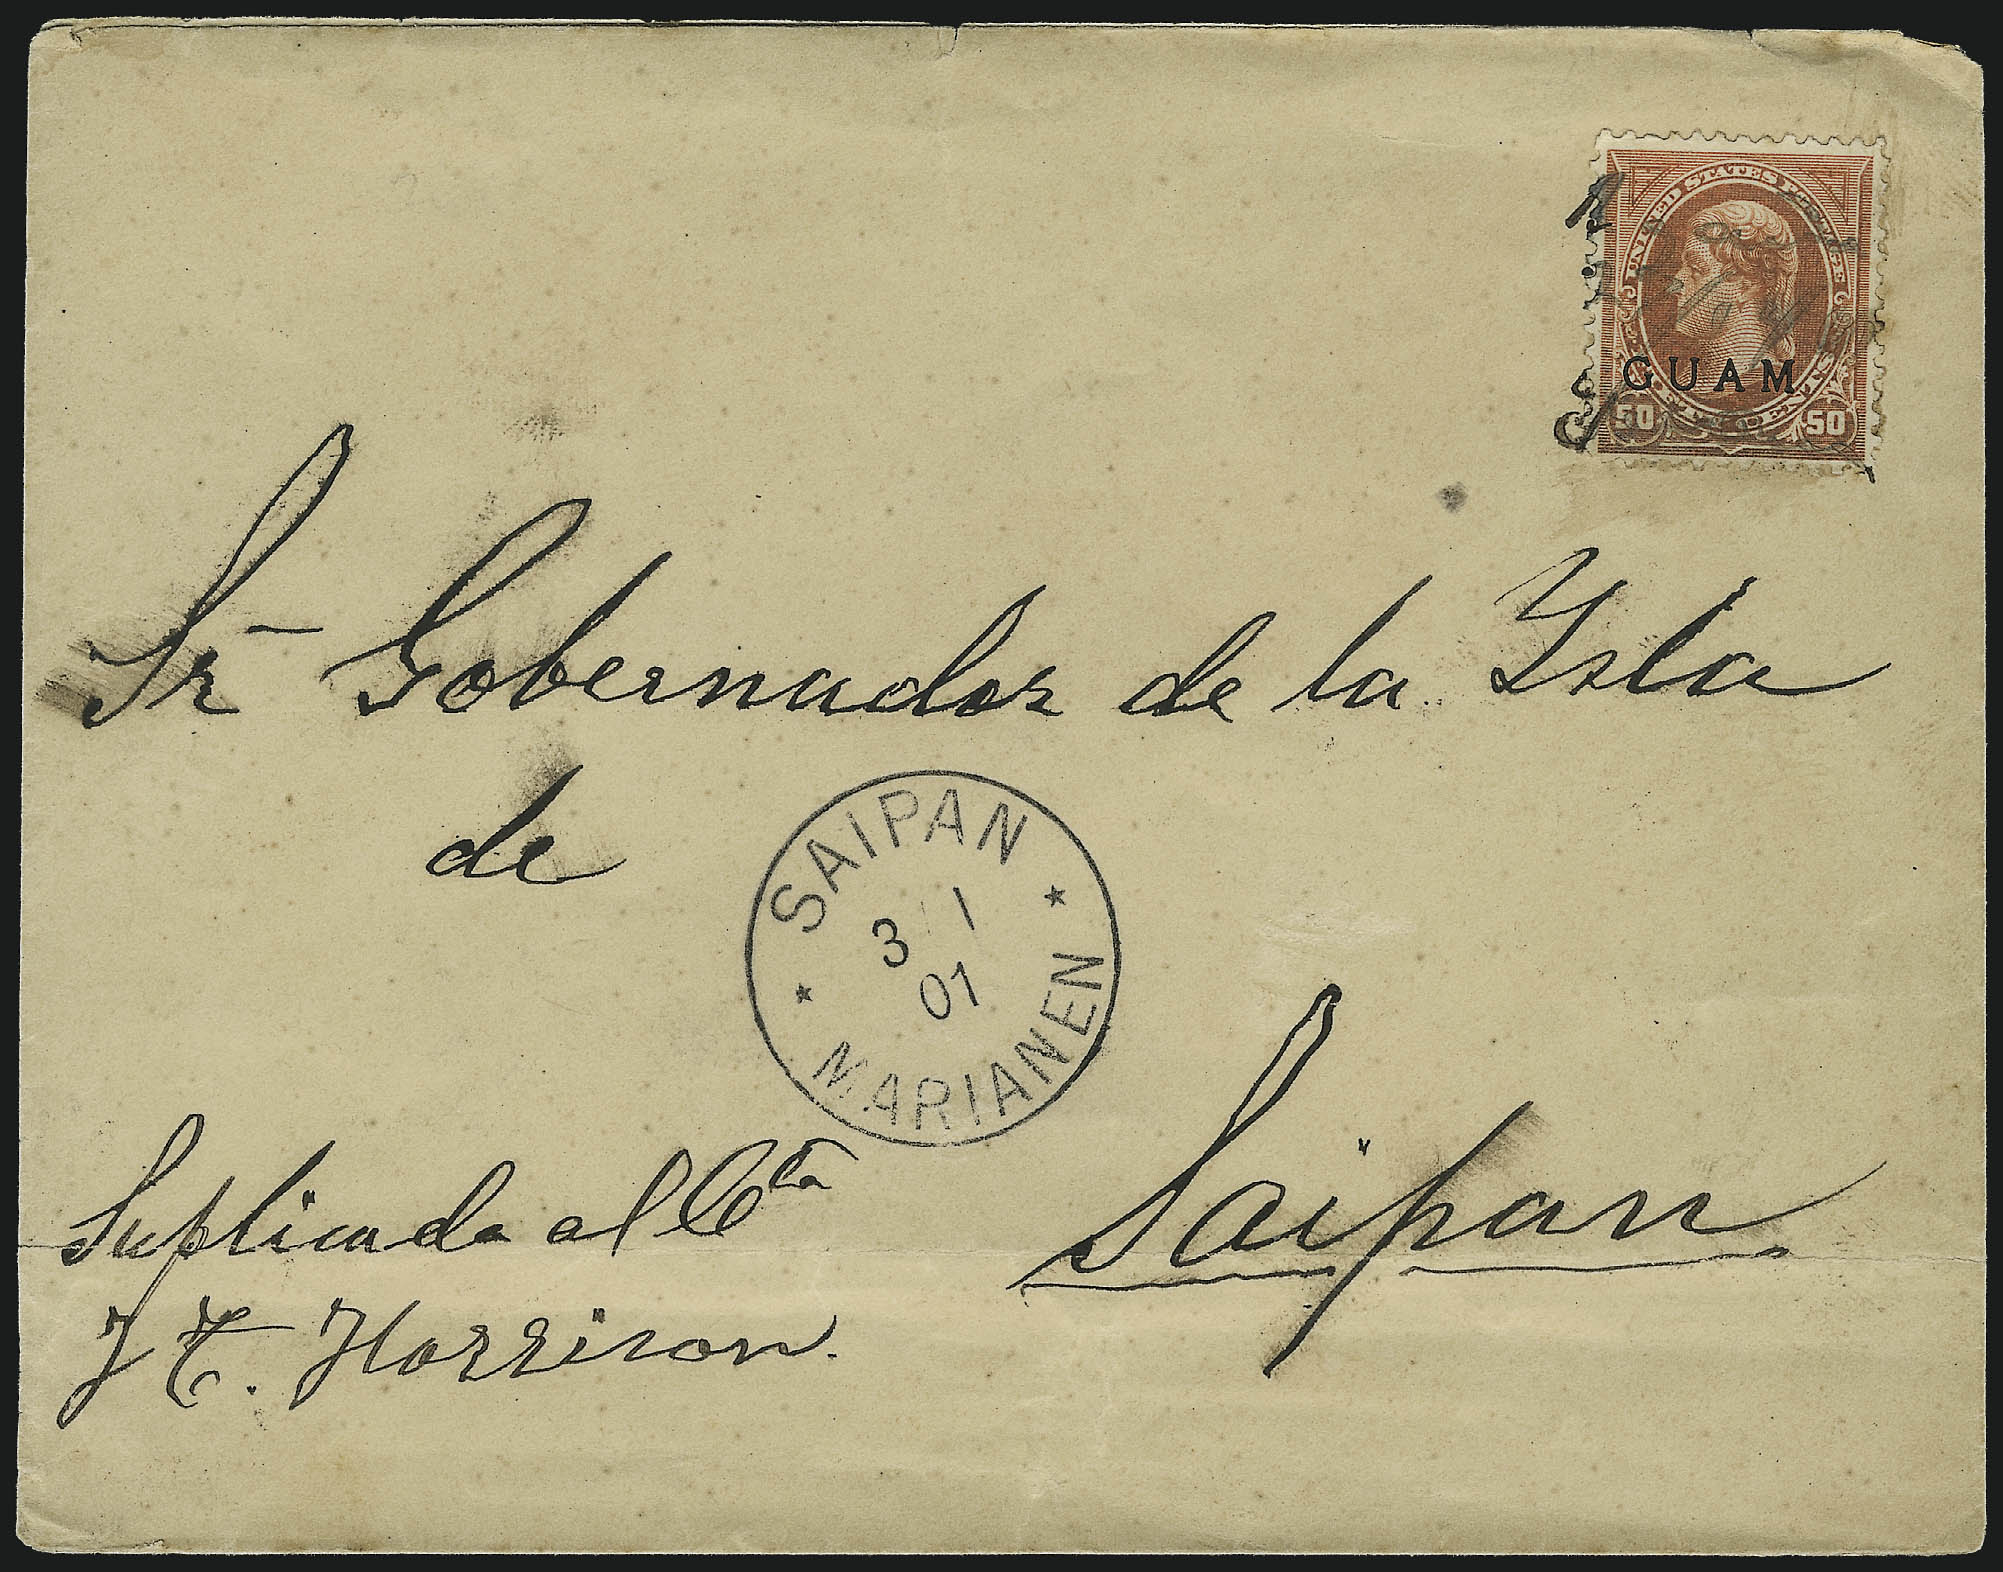 UNITED STATES POSTAGE
GUAM
FIFTY CENTS
50 50
Sr Gobernador de la Ysla
de
SAIPAN
3 1
01
MARIANEN
Saipan
Suplicada al Cta
J T. Harrison.